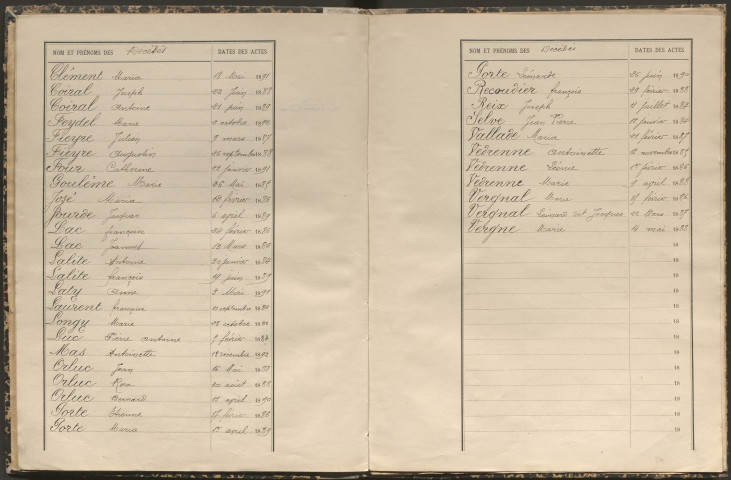 NOM ET PRÉNOMS DES Décédés DATES DES ACTES
Clément Maria 18 Mai 1891
Coiral Joseph 22 Juin 1888
Coiral Antoine 21 juin 1889
Feydel Marie octobre
Fieyre Julien 9 mars 1887
Fieyre Augustin 26 septembre 1888
Four Catherine janvier 1891
Goulème Marie 26 Mai 1887
José Maria février 1886
Jourde Jacques 6 avril 1889
Lac françoise 24 février 1886
Lac Jeannet 12 Mars 1886
Lalite Antoine 20 janvier 1884
Lalite françois 19 juin 1889
Laty Anne 2 Mai 1891
Laurent françoise septembre
Longy Marie 28 octobre
Luc Pierre Antoine 7 février 1884
Mas Antoinette novembre 1892
Orluc Jean 16 Mai 1883
Orluc Rose 20 août 1885
Orluc Bernard 12 avril 1890
Porte Etienne 17 février 1886
Porte Maria 1er avril 1889
NOM ET PRÉNOMS DES Décédés DATES DES ACTES
Porte Léonarde 26 juin 1890
Recoudier françois 29 février 1888
Reix Joseph 11 juillet 1884
Selve Jean Pierre 12 janvier 1884
Vallade Maria 22 février 1887
Vedrenne Antoinette 12 novembre 1889
Vedrenne Léonie 1er février 1886
Vedrenne Marie 9 avril 1883
Vergnal Marie 17 février 1886
Vergnal Léonard dit Jacques 22 Mars 1887
Vergne Marie 14 mai 1883
18
18
18
18
18
18
18
18
18
18
18
18
18